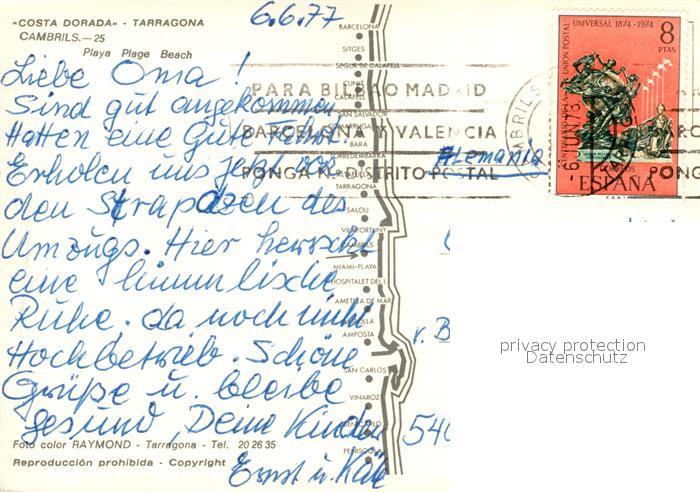 "COSTA DORADA" - TARRAGONA
CAMBRILS.—25
Playa Plage Beach
6.6.77
Liebe Oma!
Sind gut angekommen
Hatten eine Gute Fahrt.
Erholen uns jetzt von
den Strapazen des
Umzugs. Hier herrscht
eine himmlische
Ruhe. da noch nicht
Hochbetrieb. Schöne
Grüße u. bleibe
gesund, Deine Kinder
Ernst u. Käte
Foto color RAYMOND - Tarragona - Tel. 20 26 35
Reproducción prohibida - Copyright
BARCELONA
SITGES
SEGUR DE CALAFELL
CUNIT
CALAFELL
SAN SALVADOR
BARA
TORREDEMBARRA
ALTAFULLA
TARRAGONA
SALOU
VILAFORTUNY
CAMBRILS
MIAMI-PLAYA
HOSPITALET DEL I.
AMETLLA DE MAR
AMPOLLA
AMPOSTA
SAN CARLOS
VINAROZ
BENICARLO
PEÑISCOLA
PARA BILBAO MADRID
BARCELONA Y VALENCIA
PONGA N.º DISTRITO POSTAL
PONG
Alemania
UNION POSTAL UNIVERSAL 1874-1974
8
PTAS
CORREOS
ESPAÑA
v. B
540
privacy protection
Datenschutz